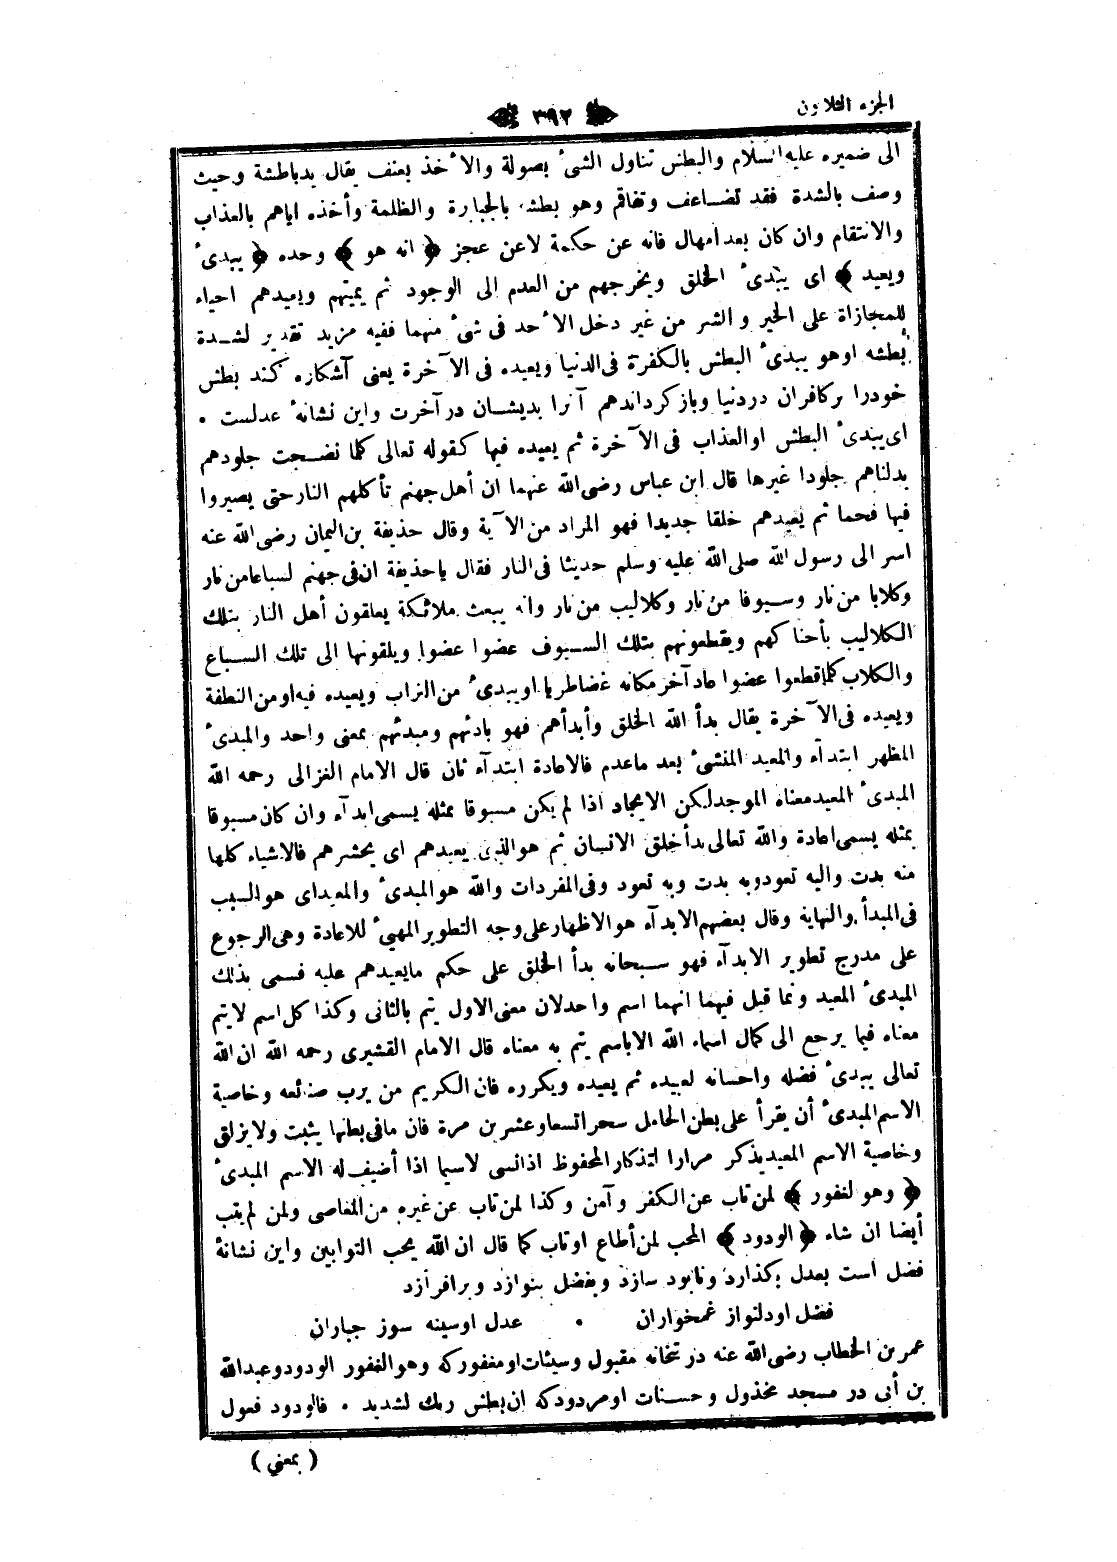 الجزء الثلاثون
٣٩٢
الى ضميره عليه السلام والبطش تناول الشئ بصولة والأخذ بعنف يقال يد باطشة وحيث
وصف بالشدة فقد تضاعف وتفاقم وهو بطشه بالجبارة والظلمة وأخذه اياهم بالعذاب
والانتقام وان كان بعد امهال فانه عن حكمة لاعن عجز ﴿ انه هو ﴾ وحده ﴿ يبدئ
ويعيد ﴾ اى يبدئ الخلق ويخرجهم من العدم الى الوجود ثم يميتهم ويعيدهم احياء
للمجازاة على الخير والشر من غير دخل لأحد فى شئ منهما ففيه مزيد تقدير لشدة
بطشه اوهو يبدئ البطش بالكفرة فى الدنيا ويعيده فى الآخرة يعنى آشكاره كند بطش
خودرا بركافران دردنيا وباز كرداندهم آنرا بديشان در آخرت واين نشانهٔ عدلست ٠
اى يبدئ البطش اوالعذاب فى الآخرة ثم يعيده فيها كقوله تعالى كلما نضجت جلودهم
بدلناهم جلودا غيرها قال ابن عباس رضى الله عنهما ان أهل جهنم تأكلهم النار حتى يصيروا
فيها فحما ثم يعيدهم خلقا جديدا فهو المراد من الآية وقال حذيفة بن اليمان رضى الله عنه
اسر الى رسول الله صلى الله عليه وسلم حديثا فى النار فقال ياحذيفة ان فى جهنم لسباعا من نار
وكلابا من نار وسيوفا من نار وكلاليب من نار وانه يبعث ملائكة يعلقون أهل النار بتلك
الكلاليب بأحناكهم ويقطعونهم بتلك السيوف عضوا عضوا ويلقونها الى تلك السباع
والكلاب كلما قطعوا عضوا عاد آخر مكانه غضا طريا اويبدئ من التراب ويعيده فيه اومن النطفة
ويعيده فى الآخرة يقال بدأ الله الخلق وأبدأهم فهو بادئهم ومبدئهم بمعنى واحد والمبدئ
المظهر ابتدآء والمعيد المنشئ بعد ماعدم فالاعادة ابتدآء ثان قال الامام الغزالى رحمه الله
المبدئ المعيد معناه الموجد لكن الايجاد اذا لم يكن مسبوقا بمثله يسمى ابدآء وان كان مسبوقا
بمثله يسمى اعادة والله تعالى بدأ خلق الانسان ثم هو الذى يعيدهم اى يحشرهم فالاشياء كلها
منه بدت واليه تعود وبه بدت وبه تعود وفى المفردات والله هو المبدئ والمعيد اى هو السبب
فى المبدأ والنهاية وقال بعضهم الابدآء هو الاظهار على وجه التطوير المهيئ للاعادة وهى الرجوع
على مدرج تطوير الابدآء فهو سبحانه بدأ الخلق على حكم مايعيدهم عليه فسمى بذلك
المبدئ المعيد ومما قيل فيهما انهما اسم واحد لان معنى الاول يتم بالثانى وكذا كل اسم لايتم
معناه فيما يرجع الى كمال اسماء الله الا باسم يتم به معناه قال الامام القشيرى رحمه الله ان الله
تعالى يبدئ فضله واحسانه لعبيده ثم يعيده ويكرره فان الكريم من يرب صنائعه وخاصية
الاسم المبدئ أن يقرأ على بطن الحامل سحرا تسعا وعشرين مرة فان مافى بطنها يثبت ولايزلق
وخاصية الاسم المعيد يذكر مرارا لتذكار المحفوظ اذا نسى لاسيما اذا أضيف له الاسم المبدئ
﴿ وهو لغفور ﴾ لمن تاب عن الكفر وآمن وكذا لمن تاب عن غيره من المعاصى ولمن لم يتب
أيضا ان شاء ﴿ الودود ﴾ المحب لمن أطاع اوتاب كما قال ان الله يحب التوابين واين نشانهٔ
فضل است بعدل بگذارد ونابود سازد وبفضل بنوازد وبرافرازد
فضل اودلنواز غمخواران ٠ عدل اوسينه سوز جباران
عمر بن الخطاب رضى الله عنه در بتخانه مقبول وسيئات اومغفوركه وهو الغفور الودود وعبدالله
بن أبى در مسجد مخذول وحسنات اومردودكه ان بطش ربك لشديد ٠ فالودود فعول
( بمعنى )